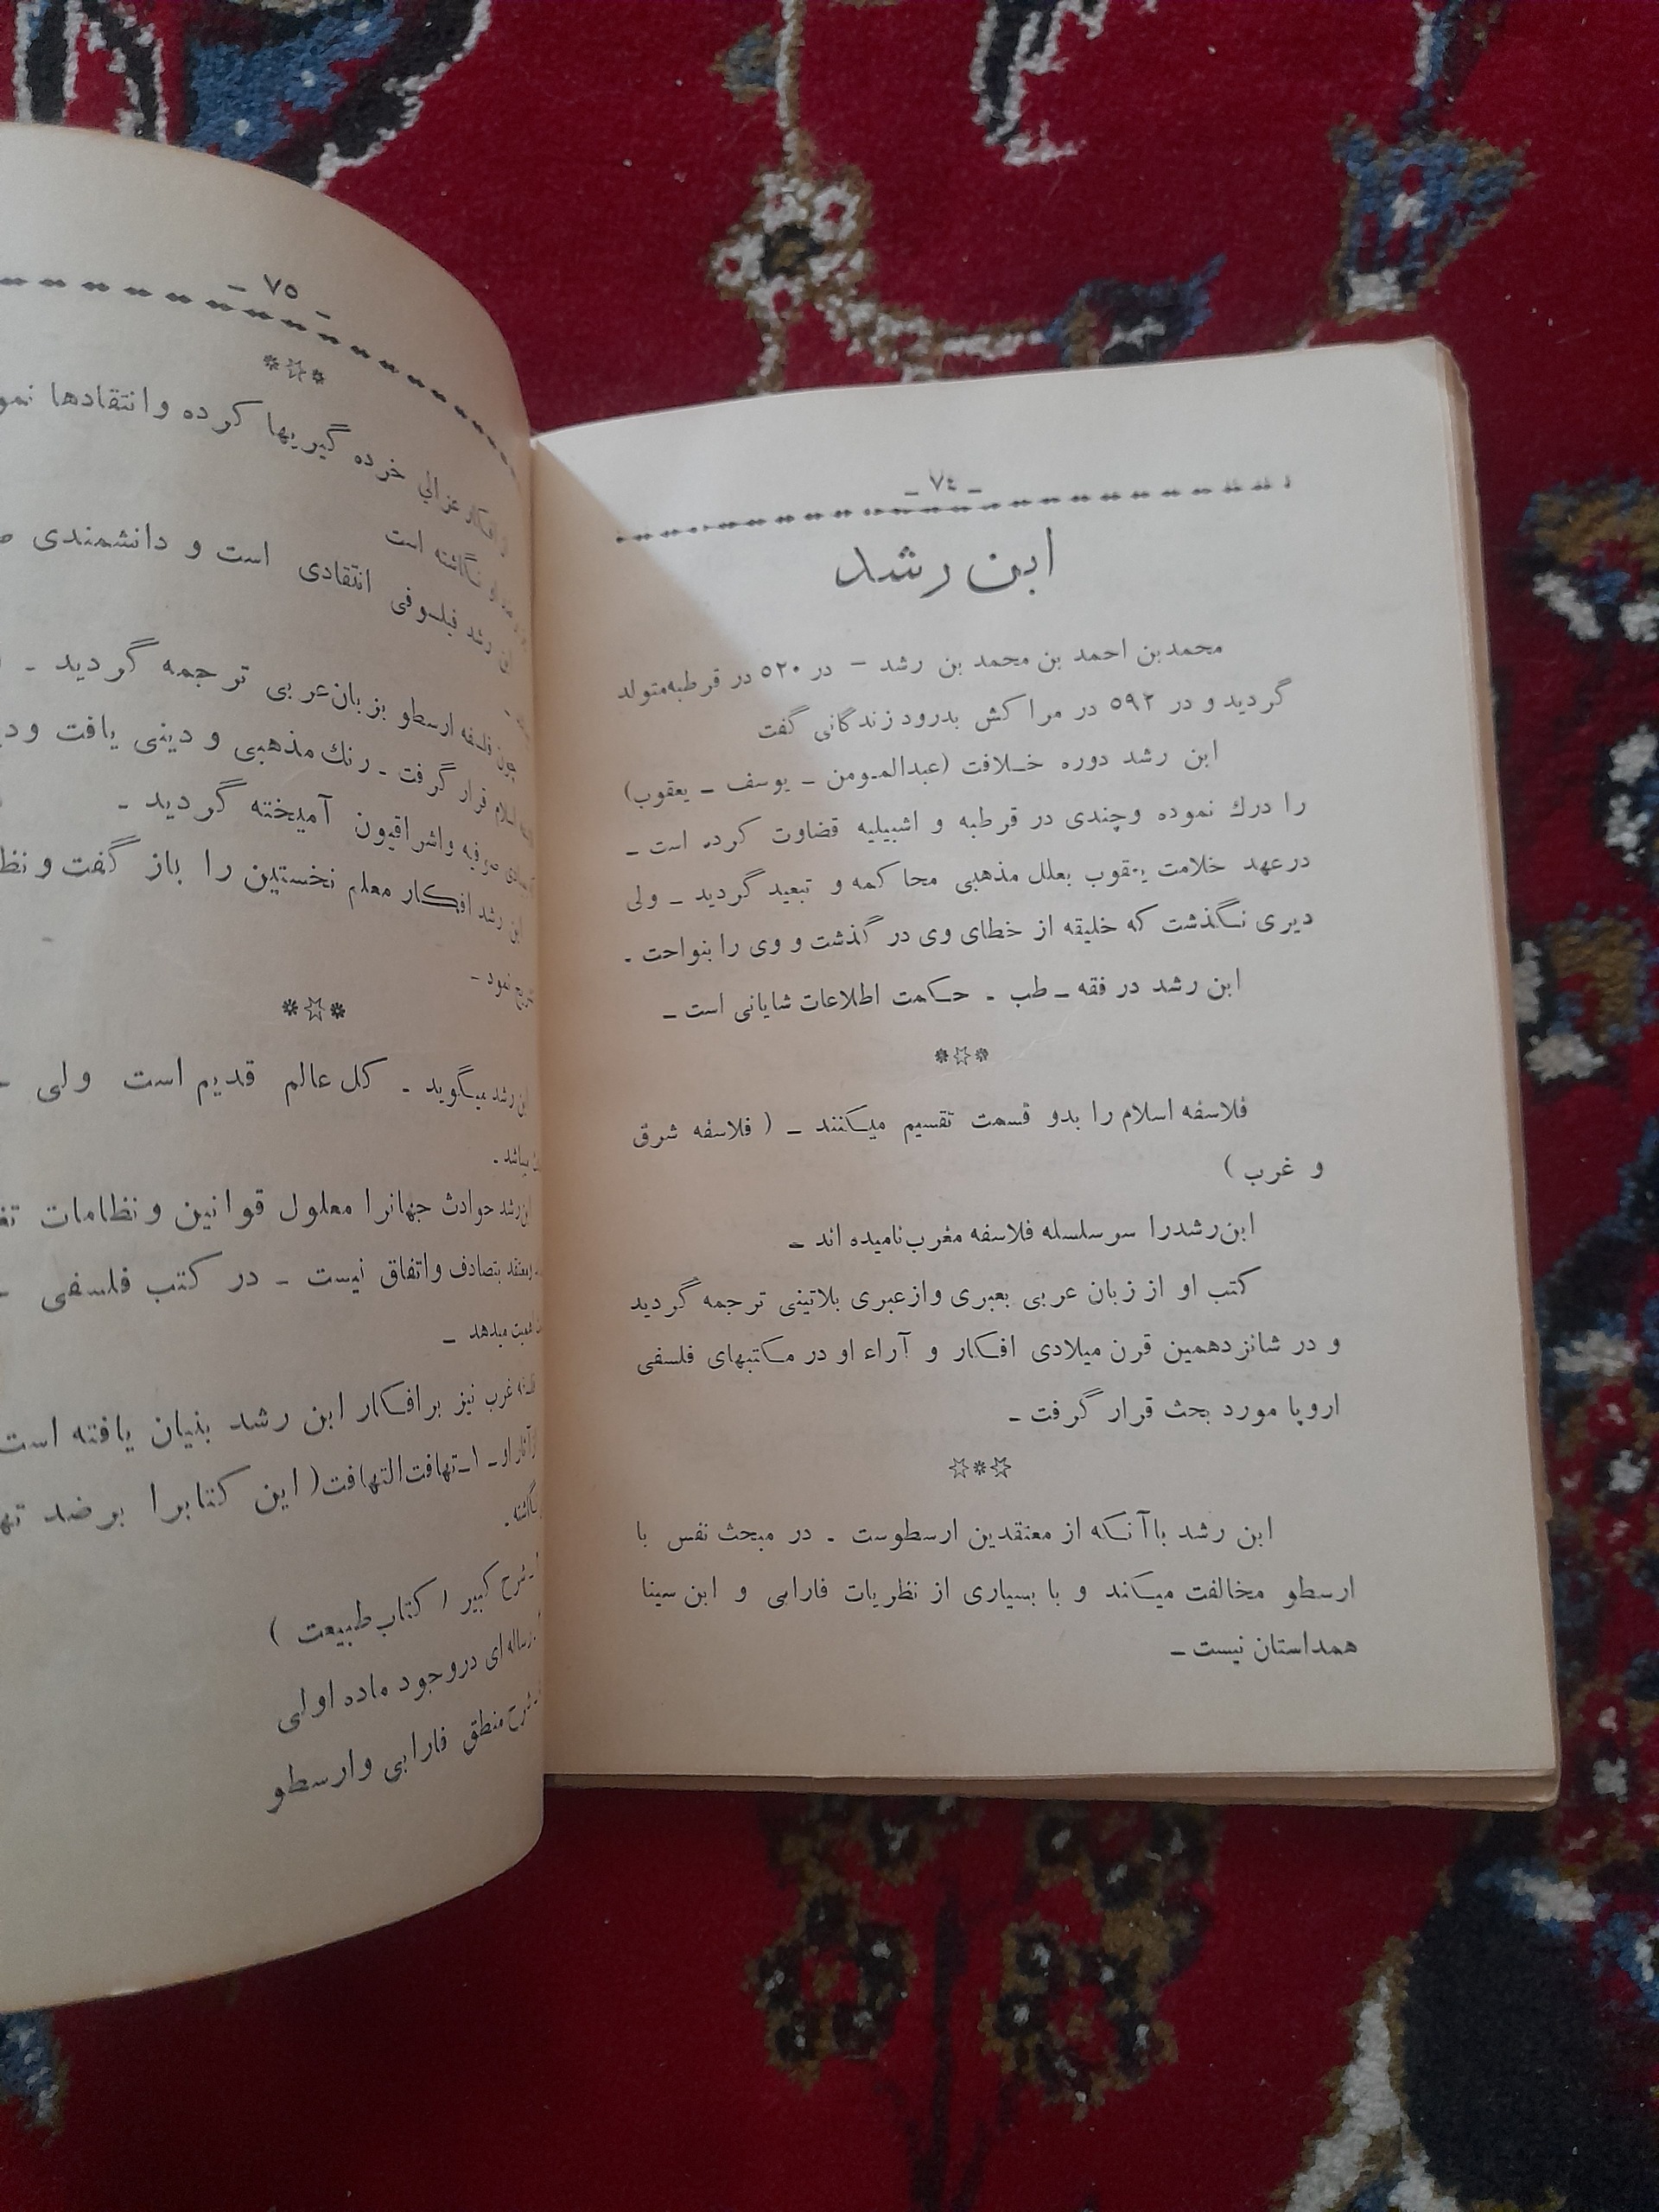 - ٧٤ -
ابن رشد
محمدبن احمد بن محمد بن رشد – در ٥٢٠ در قرطبه‌متولد
گردید و در ٥٩٢ در مراکش بدرود زندگانی گفت
ابن رشد دوره خـلافت (عبدالمـومن - یوسف - یعقوب)
را درك نموده وچندی در قرطبه و اشبیلیه قضاوت کرده است -
درعهد خلامت یعقوب بعلل مذهبی محاکمه و تبعید گردید - ولی
دیری نـگذشت که خلیقه از خطای وی در گذشت و وی را بنواحت .
ابن رشد در فقه - طب - حـکمت اطلاعات شایانی است -
***
فلاسفه اسلام را بدو قسمت تقسیم میـکنند - ( فلاسفه شرق
و غرب )
ابن‌رشدرا سرسلسله فلاسفه مغرب‌نامیده اند -
کتب او از زبان عربی بعبری وازعبری بلاتینی ترجمه گردید
و در شانزدهمین قرن میلادی افـکار و آراء او در مـکتبهای فلسفی
اروپا مورد بحث قرار گرفت -
***
ابن رشد باآنـکه از معتقدین ارسطوست - در مبحث نفس با
ارسطو مخالفت میـکند و با بسیاری از نظریات فارابی و ابن سینا
همداستان نیست -
- ٧٥ -
***
غزالی خرده گیریها کرده وانتقادها
نـگاشته است
رشد فیلـوفی انتقادی است و دانشمندی
چون فلسفه ارسطو بزبان‌عربی ترجمه گردید -
اسلام قرار گرفت - رنك مذهبی و دینی یافت
صوفیه واشراقیون آمیخته گردید -
ابن رشد افـکار معلم نخستین را باز گفت و
نمود -
***
ابن رشد میـگوید - کل عالم قدیم است ولی -
میباشد -
ابن‌رشد حوادث جهانرا معلول قوانین و نظامات
معتقد بتصادف واتفاق نیست - در کتب فلسفی -
اهمیت میدهد -
غرب نیز برافـکار ابن رشد بنیان یافته است
آثار او - ١- تهافت‌التهافت( این کتابرا برضد
نگاشته .
شرح کبیر ( کتاب طبیعت )
رساله‌ای دروجود ماده اولی
شرح منطق فارابی وارسطو